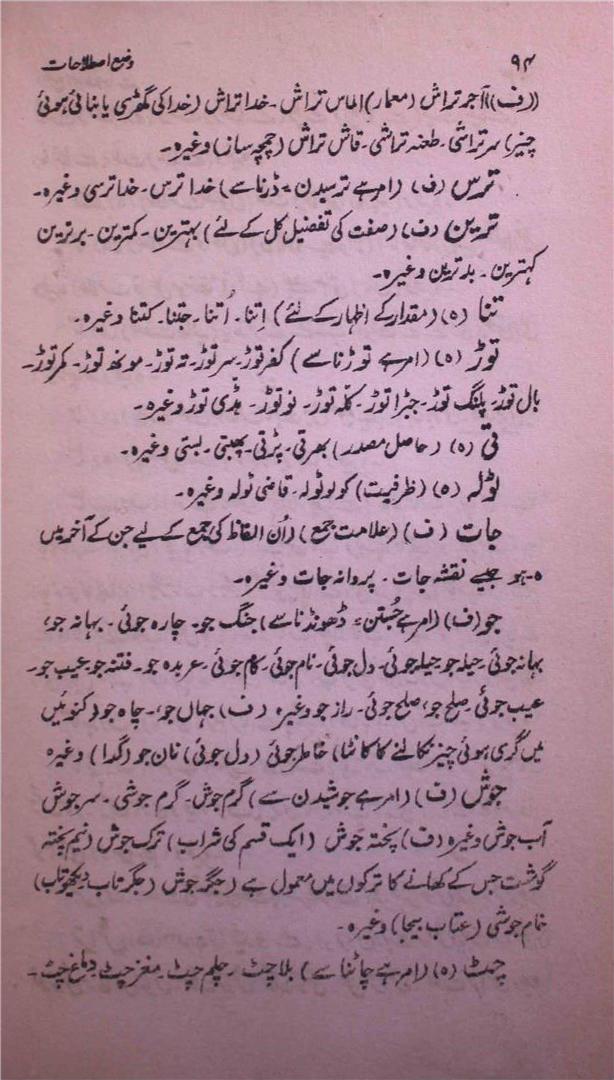 ۹۴ وضع اصطلاحات
((ف)) آجر تراش (معمار) الماس تراش ۔ خدا تراش (خدا کی گھڑی یا بنائی ہوئی
چیز) سر تراشی ۔ طعنہ تراشی ۔ قاش تراش (چمچہ ساز) وغیرہ ۔
ترس (ف) (امر ہے ترسیدن = ڈرنا سے) خدا ترس ۔ خدا ترسی وغیرہ ۔
ترین (ف) (صفت کی تفضیل کل کے لئے) بہترین ۔ کمترین ۔ برترین
کہترین ۔ بدترین وغیرہ ۔
تنا (ہ) (مقدار کے اظہار کے لئے) اِتنا ۔ اُتنا ۔ جتنا ۔ کتنا وغیرہ ۔
توڑ (ہ) (امر ہے توڑنا سے) کفر توڑ ۔ سر توڑ ۔ تہ توڑ ۔ مونھ توڑ ۔ کمر توڑ ۔
بال توڑ ۔ پلنگ توڑ ۔ جبڑا توڑ ۔ کلّہ توڑ ۔ نو توڑ ۔ ہڈی توڑ وغیرہ ۔
تی (ہ) (حاصل مصدر) بھرتی ۔ پڑتی ۔ پھبتی ۔ بستی وغیرہ ۔
ٹولہ (ہ) (ظرفیت) کولو ٹولہ ۔ قاضی ٹولہ وغیرہ ۔
جات (ف) (علامت جمع) (اُن الفاظ کی جمع کے لیے جن کے آخر میں
ہ ۔ ہو جیسے نقشہ جات ۔ پروانہ جات وغیرہ ۔
جو (ف) (امر ہے جُستن = ڈھونڈنا سے) جنگ جو ۔ چارہ جوئی ۔ بہانہ جو،
بہانہ جوئی ۔ حیلہ جو حیلہ جوئی ۔ دل جوئی ۔ نام جوئی ۔ کام جوئی ۔ عربدہ جو ۔ فتنہ جو عیب جو ۔
عیب جوئی ۔ صلح جو، صلح جوئی ۔ راز جو وغیرہ (ف) جہاں جو، ۔ چاہ جو (کنوئیں
میں گری ہوئی چیز نکالنے کا کانٹا) خاطر جوئی (دل جوئی) نان جو (گدا) وغیرہ
جوش (ف) (امر ہے جوشیدن سے) گرم جوش ۔ گرم جوشی ۔ سر جوش
آب جوش وغیرہ (ف) پختہ جوش (ایک قسم کی شراب) ترک جوش (نیم پختہ
گوشت جس کے کھانے کا ترکوں میں معمول ہے) جگر جوش (جگر تاب دیکھو تاب)
خام جوشی (عتاب بیجا) وغیرہ ۔
چٹ (ہ) (امر ہے چاٹنا سے) بلا چٹ ۔ چلم چٹ ۔ مغز چٹ ۔ دماغ چٹ ۔